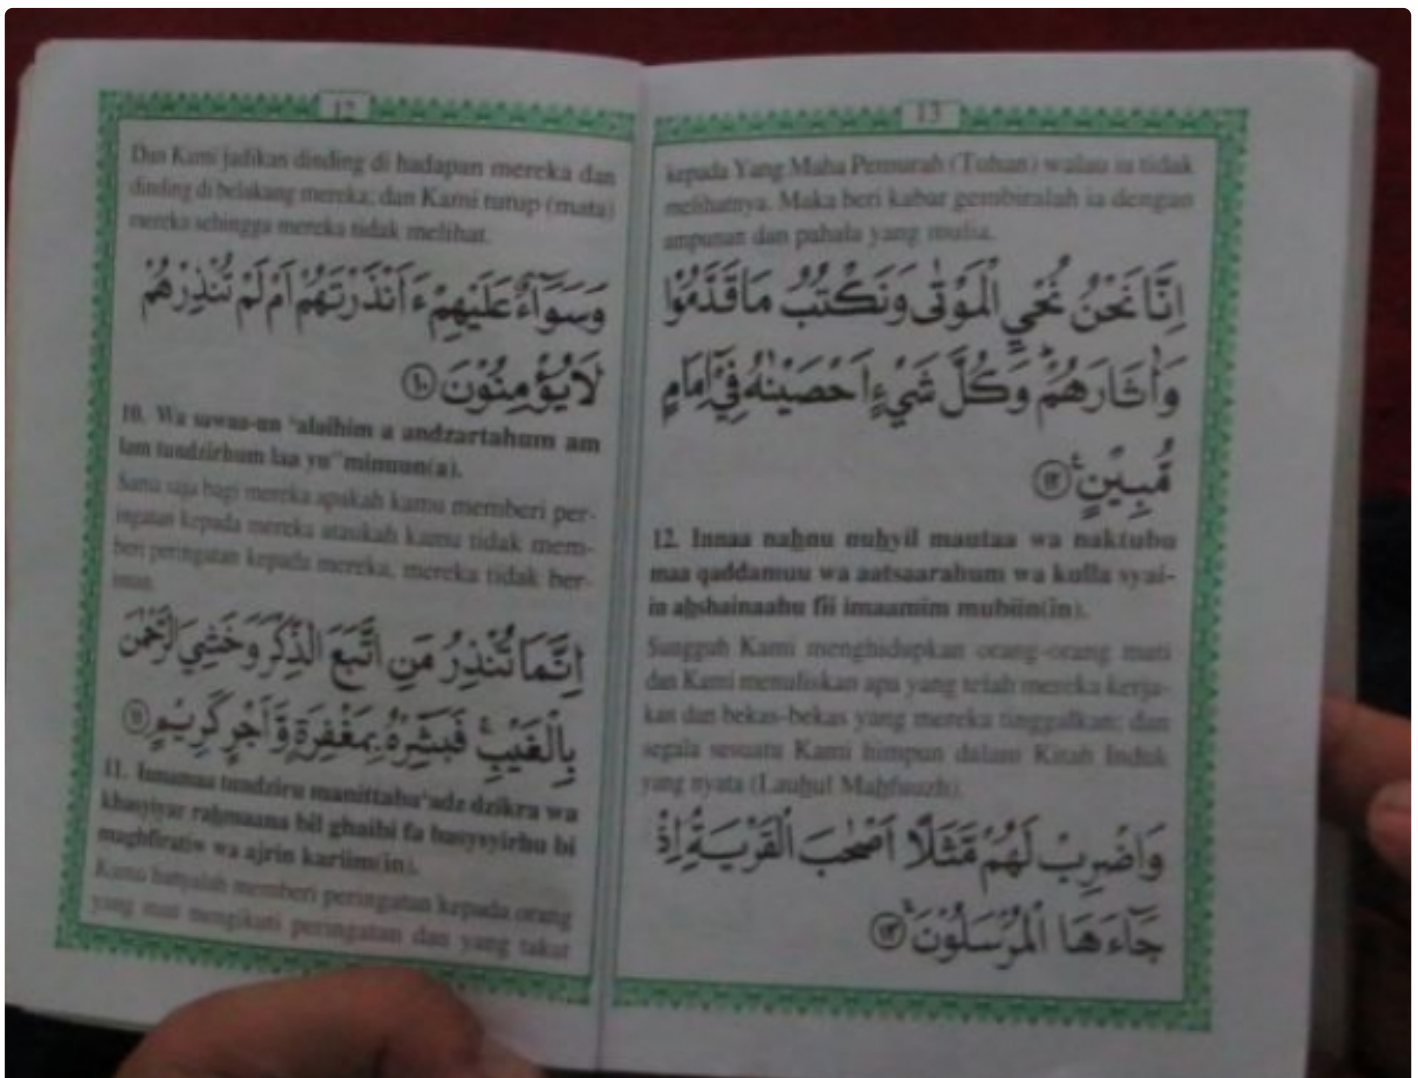 12
Dan Kami jadikan dinding di hadapan mereka dan
dinding di belakang mereka; dan Kami tutup (mata)
mereka sehingga mereka tidak melihat.
وَسَوَآءٌ عَلَيْهِمْ ءَاَنْذَرْتَهُمْ اَمْ لَمْ تُنْذِرْهُمْ
لَايُؤْمِنُوْنَ ⑩
10. Wa sawaa-un 'alaihim a andzartahum am
lam tundzirhum laa yu'minuun(a).
Sama saja bagi mereka apakah kamu memberi per-
ingatan kepada mereka ataukah kamu tidak mem-
beri peringatan kepada mereka, mereka tidak ber-
iman.
اِنَّمَا تُنْذِرُ مَنِ اتَّبَعَ الذِّكْرَ وَخَشِيَ الرَّحْمٰنَ
بِالْغَيْبِۚ فَبَشِّرْهُ بِمَغْفِرَةٍ وَّاَجْرٍ كَرِيْمٍ ⑪
11. Innamaa tundziru manittaba'adz dzikra wa
khasyiyar rahmaana bil ghaibi fa basysyirhu bi
maghfiratiw wa ajrin kariim(in).
Kamu hanyalah memberi peringatan kepada orang
yang mau mengikuti peringatan dan yang takut
13
kepada Yang Maha Pemurah (Tuhan) walau ia tidak
melihatnya. Maka beri kabar gembiralah ia dengan
ampunan dan pahala yang mulia.
اِنَّا نَحْنُ نُحْيِ الْمَوْتٰى وَنَكْتُبُ مَاقَدَّمُوْا
وَاٰثَارَهُمْۗ وَكُلَّ شَيْءٍ اَحْصَيْنٰهُ فِيْٓ اِمَامٍ
مُّبِيْنٍ ࣖ ⑫
12. Innaa nahnu nuhyil mautaa wa naktubu
maa qaddamuu wa aatsaarahum wa kulla syai-
in ahshainaahu fii imaamim mubiin(in).
Sungguh Kami menghidupkan orang-orang mati
dan Kami menuliskan apa yang telah mereka kerja-
kan dan bekas-bekas yang mereka tinggalkan; dan
segala sesuatu Kami himpun dalam Kitab Induk
yang nyata (Lauhul Mahfuuzh).
وَاضْرِبْ لَهُمْ مَّثَلًا اَصْحٰبَ الْقَرْيَةِۘ اِذْ
جَآءَهَا الْمُرْسَلُوْنَۚ ⑬